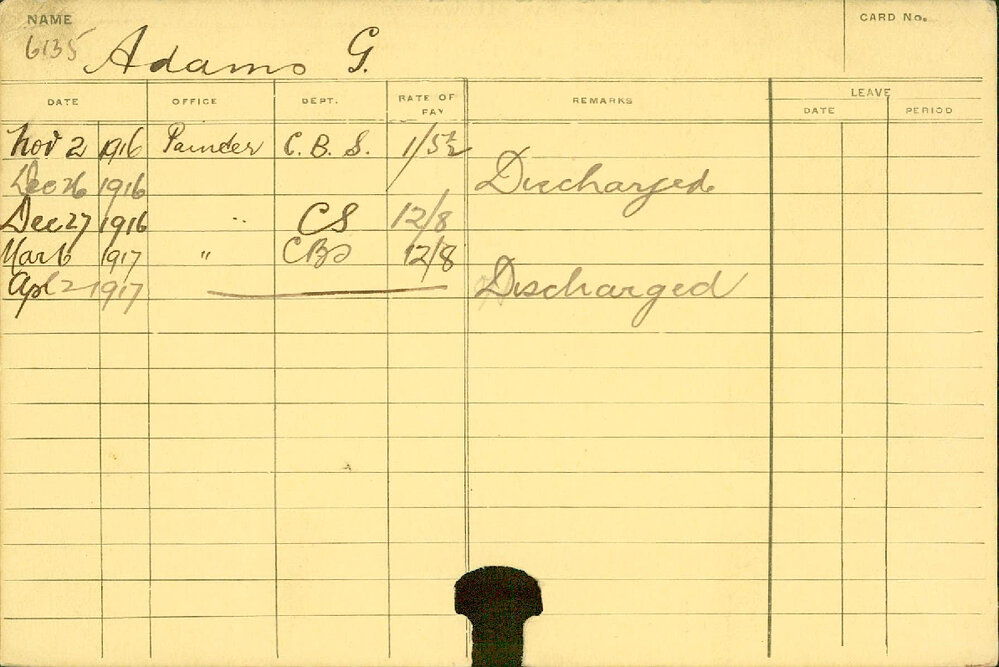 NAME
CARD No.
6135
Adams G.
DATE OFFICE DEPT. RATE OF PAY REMARKS LEAVE
DATE PERIOD
Nov 2 1916 Painter C. B. S. 1/5½
Dec 26 1916 Discharged
Dec 27 1916 " CS 12/8
Mar 6 1917 " CBS 12/8
Apl 2 1917 Discharged